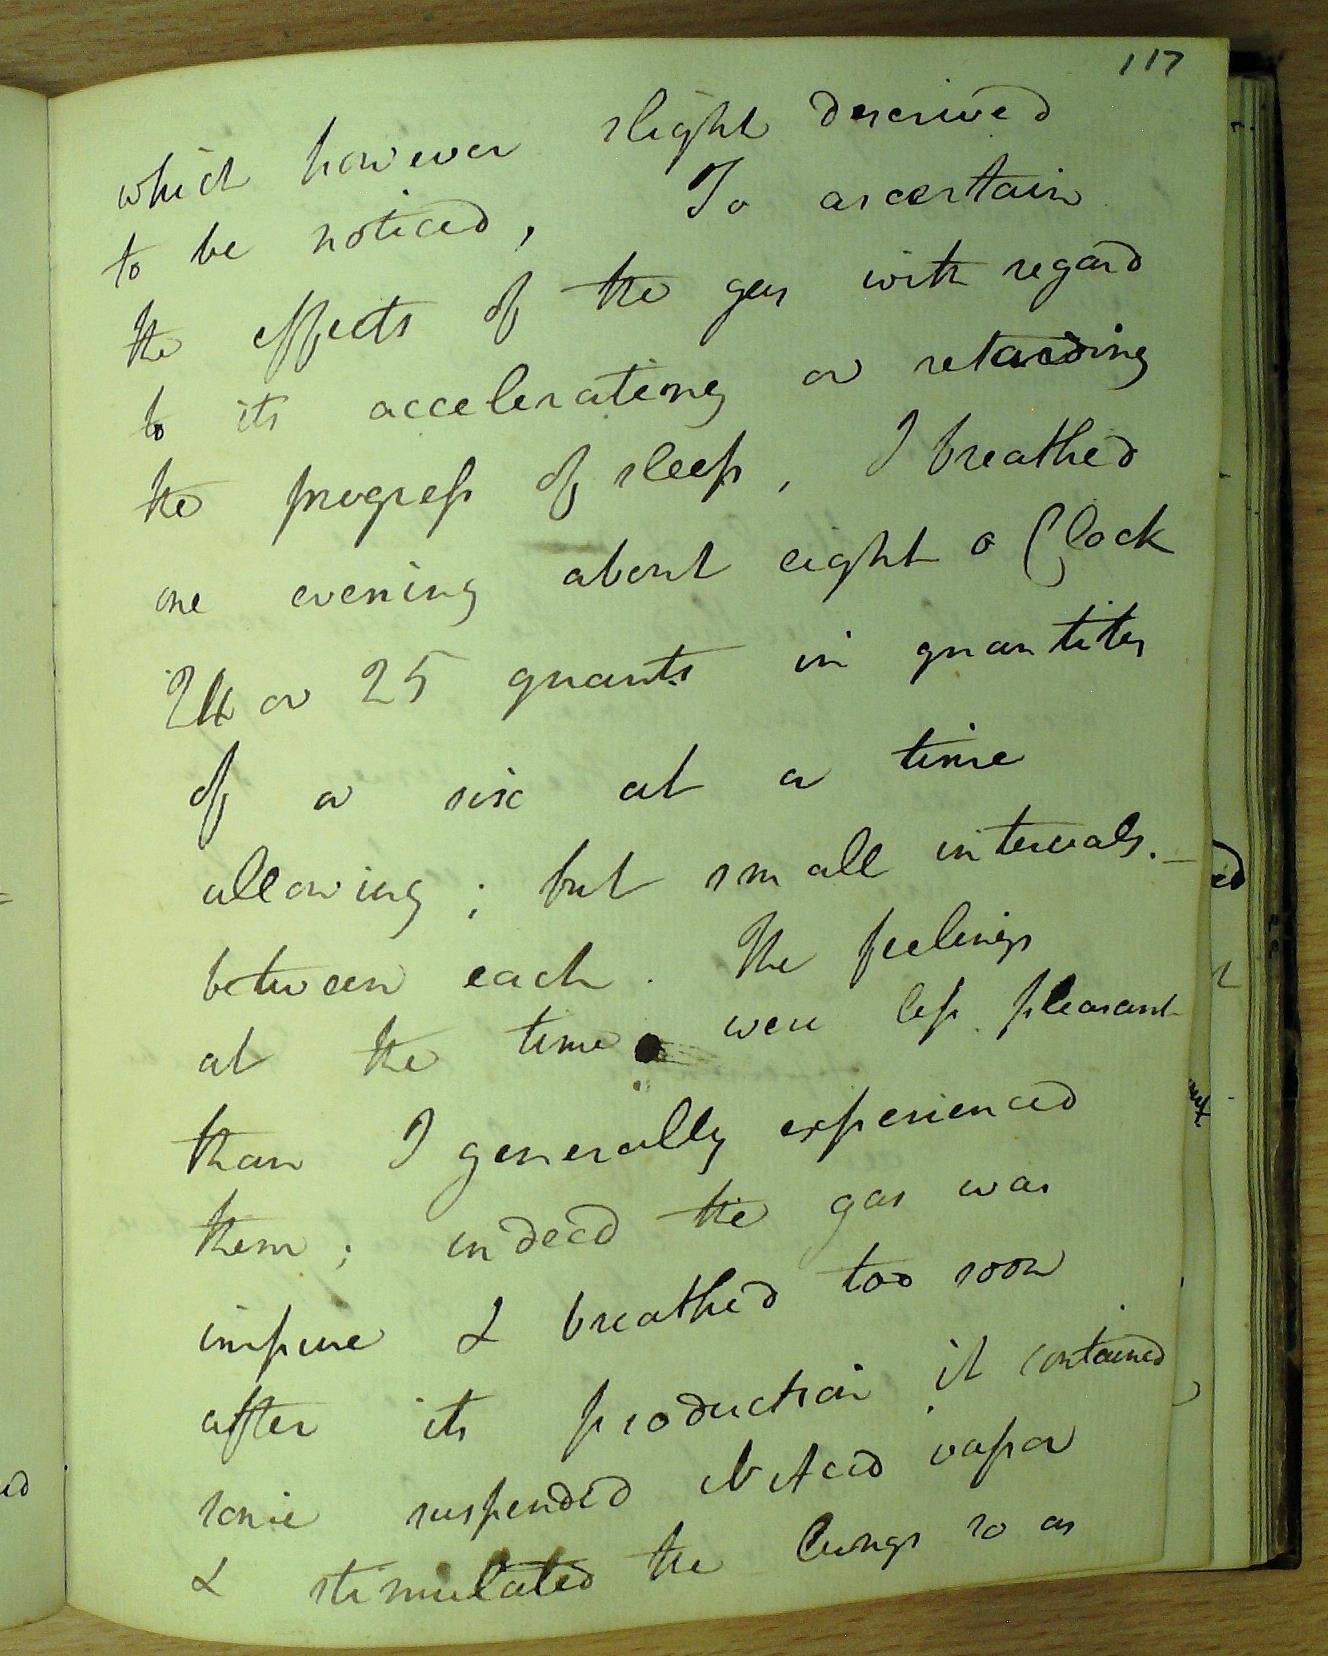 117
which however slight deserved
to be noticed, To ascertain
the effects of the gas with regard
to its accelerating or retarding
the progress of sleep, I breathed
one evening about eight o Clock
24 or 25 quarts in quantities
of a six at a time
allowing; but small intervals.
between each. The feelings
at the time were less pleasant
than I generally experienced
them; indeed the gas was
impure & breathed too soon
after its production it contained
some suspended N Acid vapor
& stimulated the lungs so as